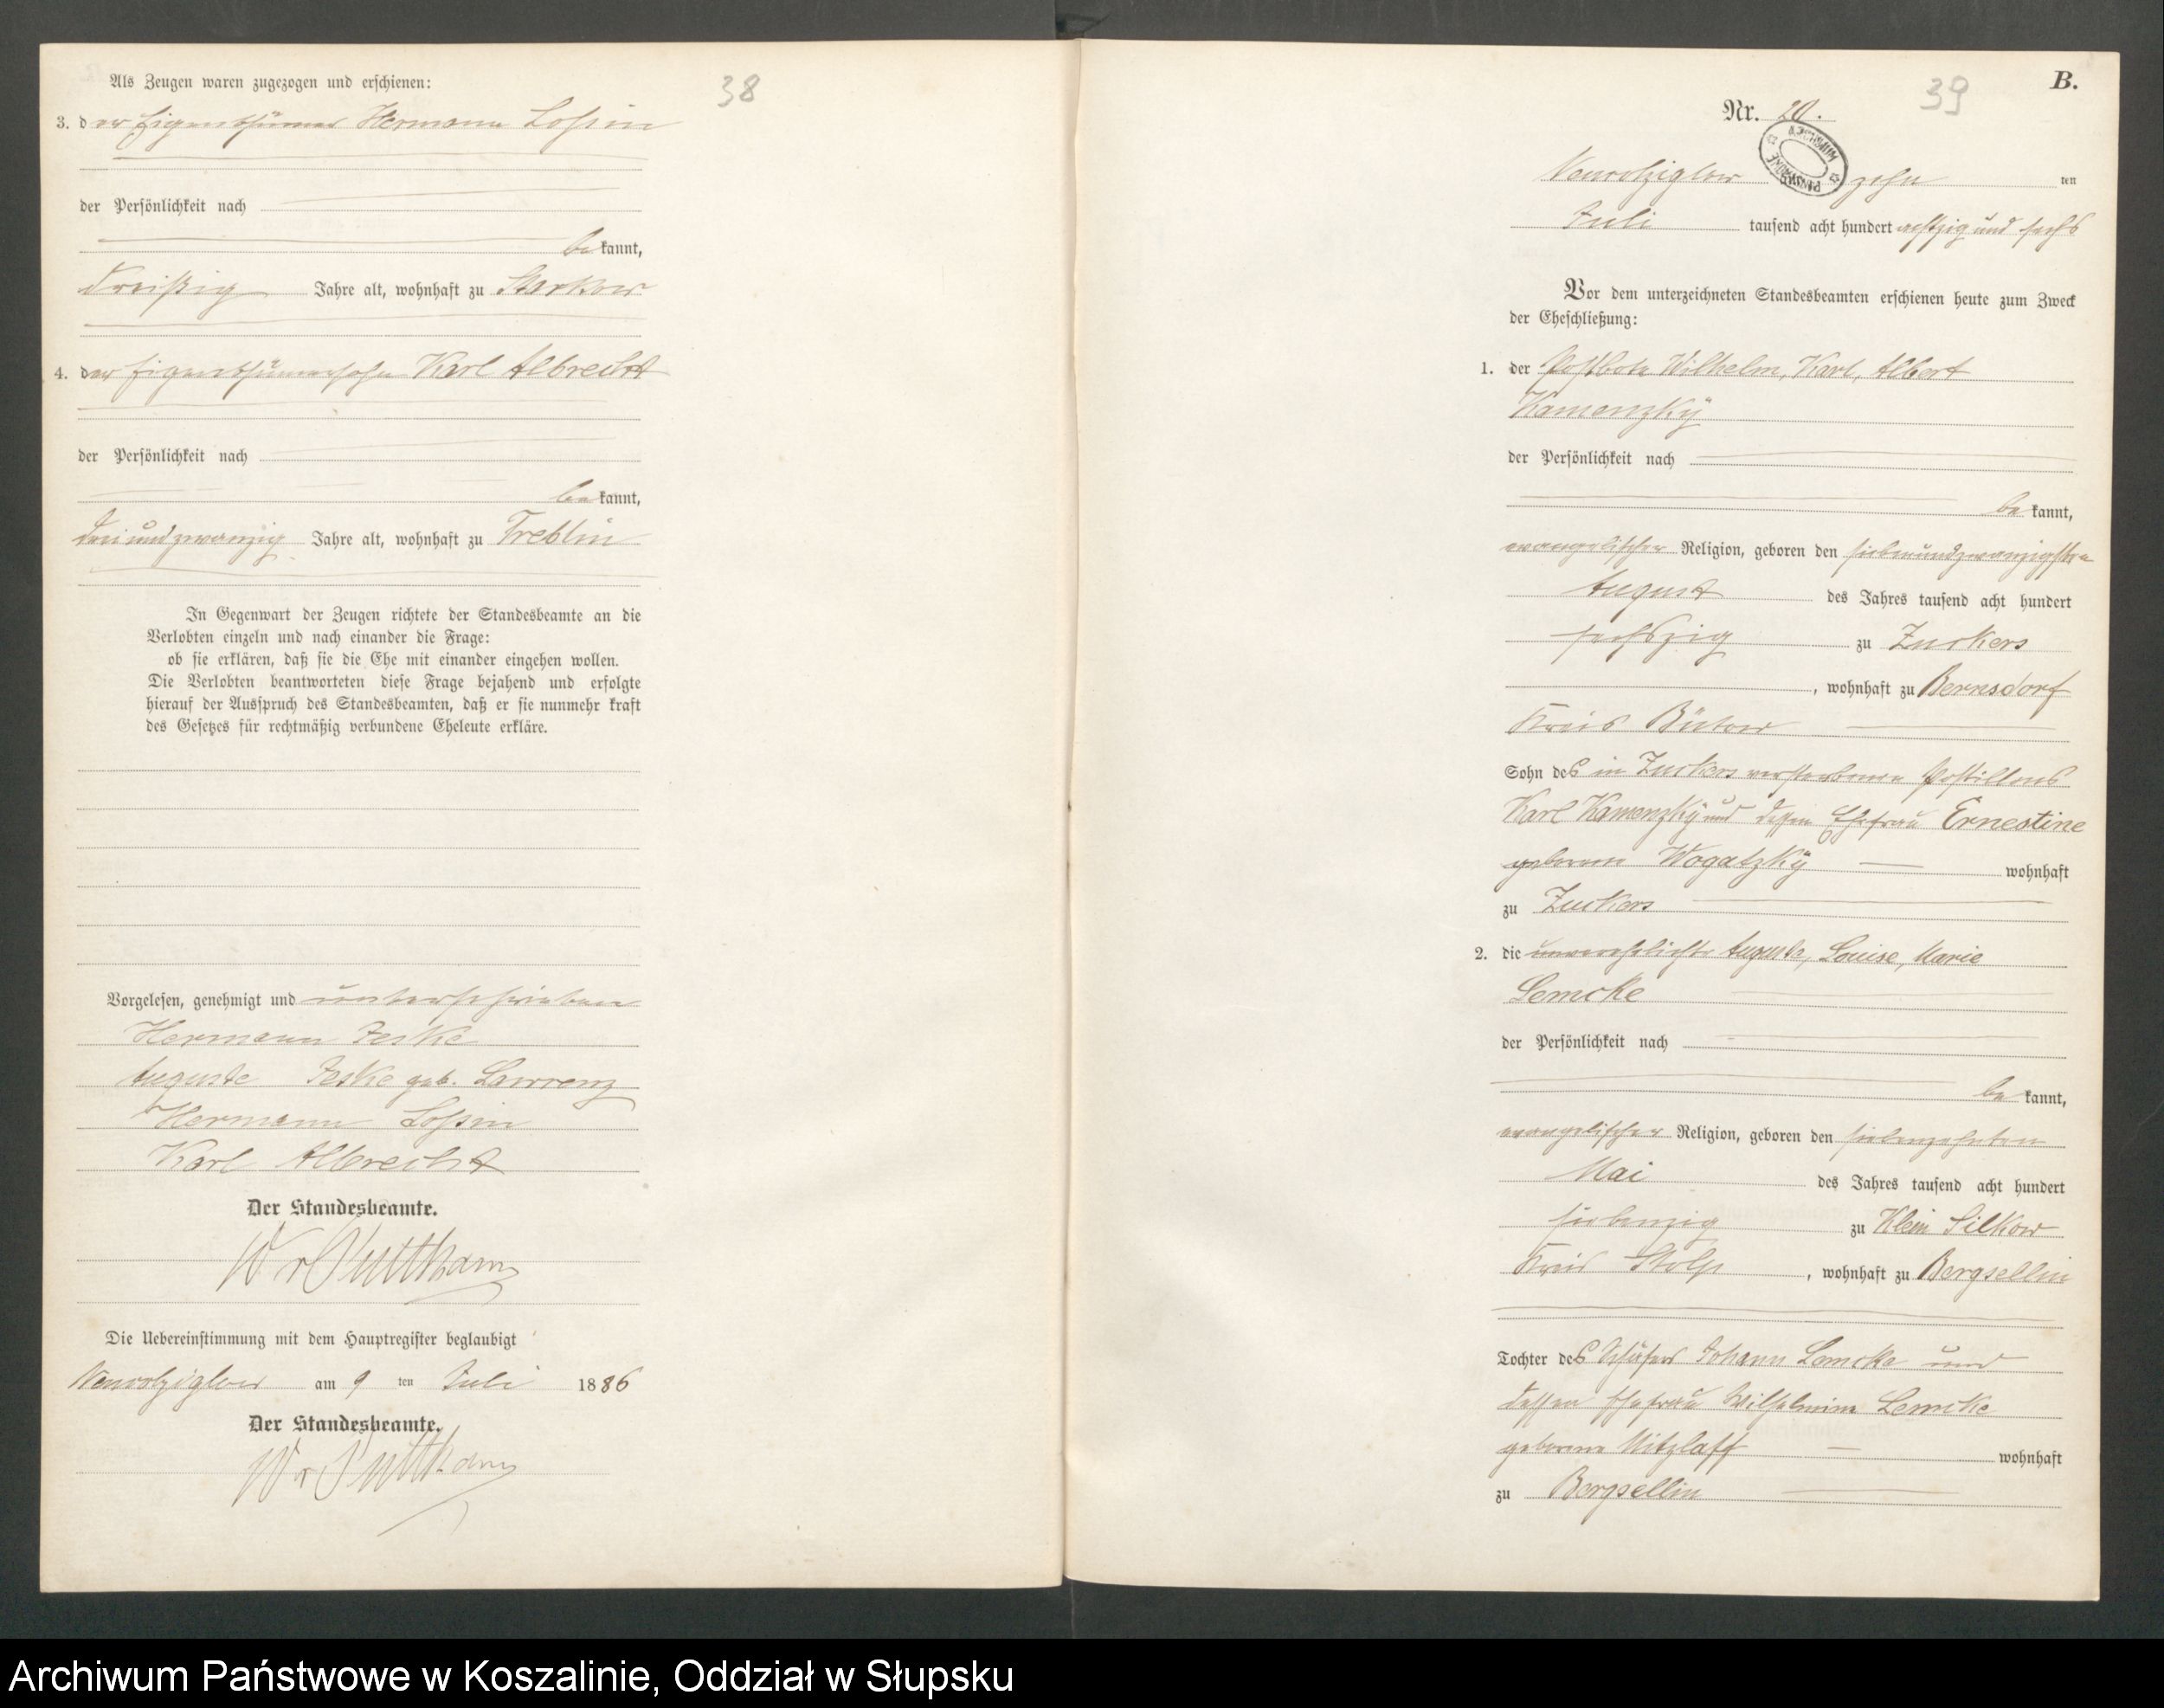 Als Zeugen waren zugezogen und erschienen:
38
3. der Eigenthümer Hermann Lossin
der Persönlichkeit nach
bekannt,
dreißig Jahre alt, wohnhaft zu Starkow
4. der Eigenthümersohn Karl Albrecht
der Persönlichkeit nach
bekannt,
dreiundzwanzig Jahre alt, wohnhaft zu Treblin
In Gegenwart der Zeugen richtete der Standesbeamte an die
Verlobten einzeln und nach einander die Frage:
ob sie erklären, daß sie die Ehe mit einander eingehen wollen.
Die Verlobten beantworteten diese Frage bejahend und erfolgte
hierauf der Ausspruch des Standesbeamten, daß er sie nunmehr kraft
des Gesetzes für rechtmäßig verbundene Eheleute erkläre.
Vorgelesen, genehmigt und unterschrieben
Hermann Jeske
Auguste Jeske geb. Lawrenz
Hermann Lossin
Karl Albrecht
Der Standesbeamte.
W v Puttkamer
Die Uebereinstimmung mit dem Hauptregister beglaubigt
Neukolziglow am 9 ten Juli 1886
Der Standesbeamte.
W v Puttkamer
B.
39
Nr. 20.
Neukolziglow zehn ten
Juli tausend acht hundert achtzig und sechs
Vor dem unterzeichneten Standesbeamten erschienen heute zum Zweck
der Eheschließung:
1. der Postbote Wilhelm, Karl, Albert
Kamenzky
der Persönlichkeit nach
bekannt,
evangelischer Religion, geboren den siebenundzwanzigsten
August des Jahres tausend acht hundert
sechszig zu Zuckers
, wohnhaft zu Bernsdorf
Kreis Bütow
Sohn des in Zuckers verstorbenen Postillons
Karl Kamenzky und dessen Ehefrau Ernestine
geborene Wogatzky wohnhaft
zu Zuckers
2. die unverehelichte Auguste, Louise, Marie
Lemcke
der Persönlichkeit nach
bekannt,
evangelischer Religion, geboren den siebenzehnten
Mai des Jahres tausend acht hundert
siebenzig zu Klein Silkow
Kreis Stolp, wohnhaft zu Bergsellin
Tochter des Schäfers Johann Lemcke und
dessen Ehefrau Wilhelmine Lemcke
geborene Mitzlaff wohnhaft
zu Bergsellin
Archiwum Państwowe w Koszalinie, Oddział w Słupsku